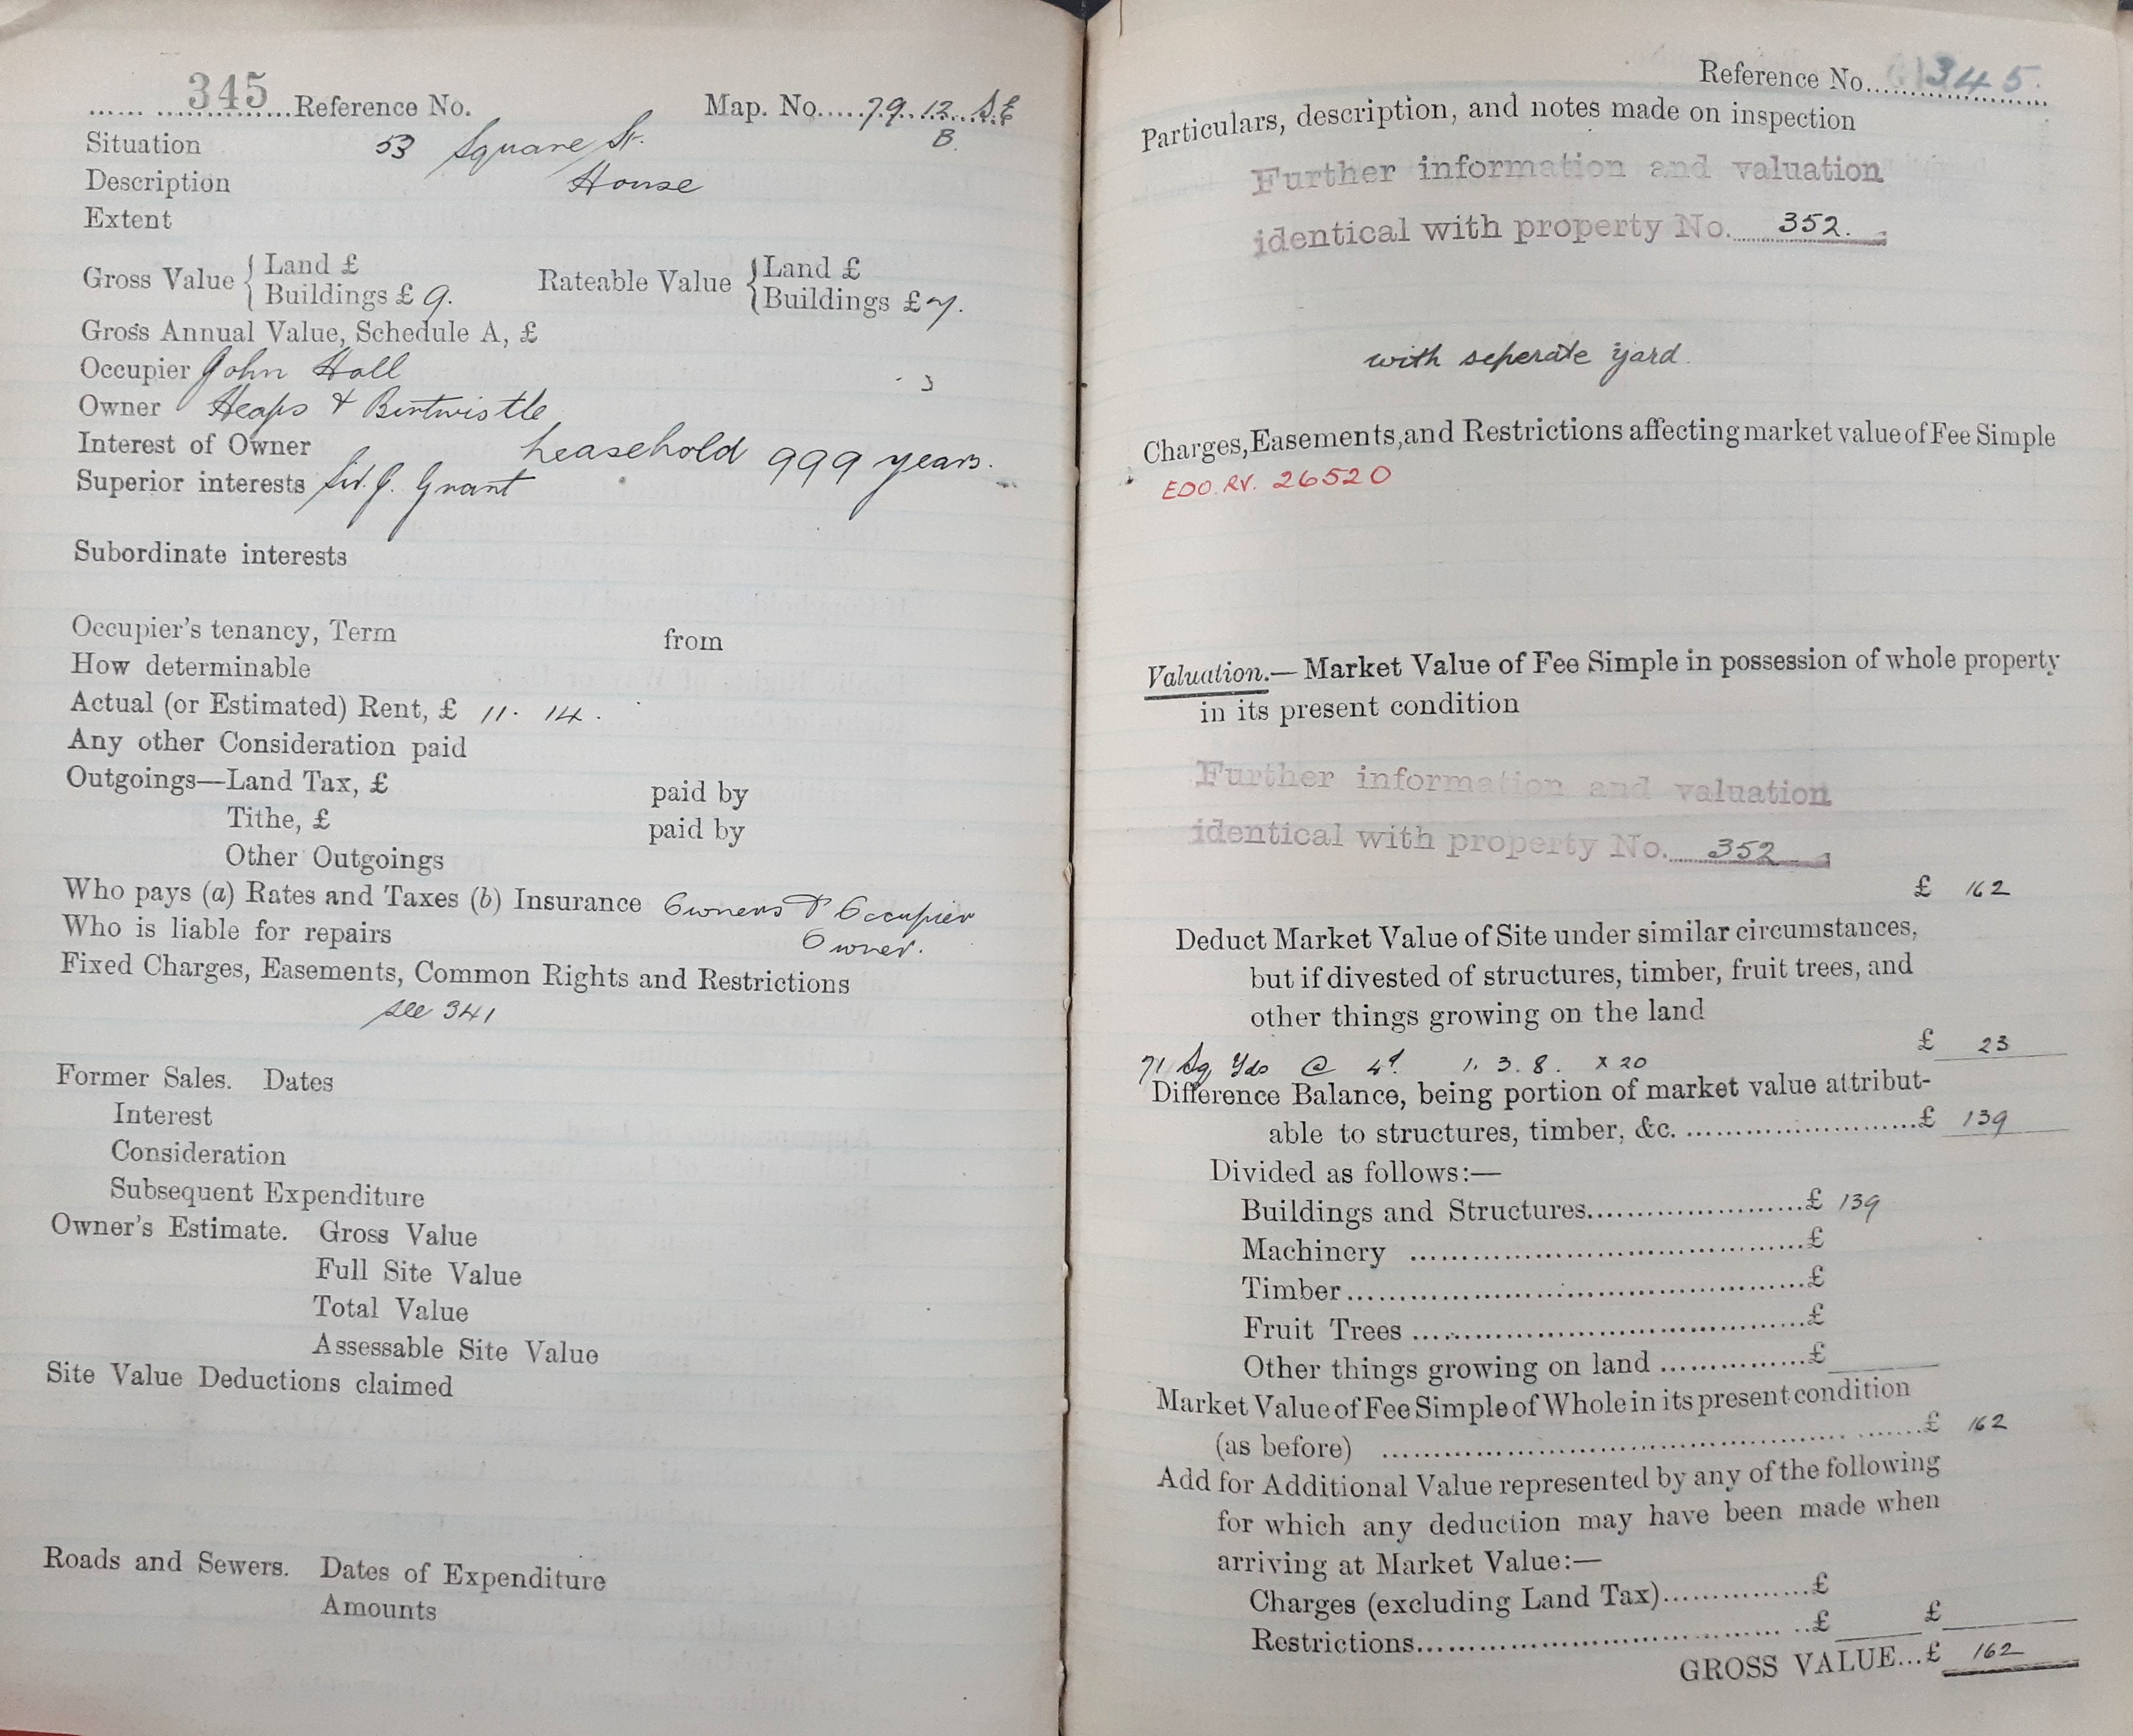 ...... ....345....Reference No. Map. No.....79.12. S.E
B.
Situation 53 Square St.
Description House
Extent
Gross Value { Land £
Buildings £ 9. Rateable Value { Land £
Buildings £ 7.
Gross Annual Value, Schedule A, £
Occupier John Hall
Owner Heaps & Bintwistle
Interest of Owner Leasehold 999 years.
Superior interests Sir. J. Grant
Subordinate interests
Occupier's tenancy, Term from
How determinable
Actual (or Estimated) Rent, £ 11. 14.
Any other Consideration paid
Outgoings—Land Tax, £ paid by
Tithe, £ paid by
Other Outgoings
Who pays (a) Rates and Taxes (b) Insurance Owners & Occupier
Who is liable for repairs Owner.
Fixed Charges, Easements, Common Rights and Restrictions
see 341
Former Sales. Dates
Interest
Consideration
Subsequent Expenditure
Owner's Estimate. Gross Value
Full Site Value
Total Value
Assessable Site Value
Site Value Deductions claimed
Roads and Sewers. Dates of Expenditure
Amounts
Reference No. 345.
Particulars, description, and notes made on inspection
Further information and valuation
identical with property No. 352.
with seperate yard.
Charges, Easements, and Restrictions affecting market value of Fee Simple
EDO. RV. 26520
Valuation.— Market Value of Fee Simple in possession of whole property
in its present condition
Further information and valuation
identical with property No. 352
£ 162
Deduct Market Value of Site under similar circumstances,
but if divested of structures, timber, fruit trees, and
other things growing on the land
£ 23
71 Sq Yds @ 4d. 1. 3. 8. x 20
Difference Balance, being portion of market value attribut-
able to structures, timber, &c. ........£ 139
Divided as follows:—
Buildings and Structures........£ 139
Machinery ........£
Timber........£
Fruit Trees ........£
Other things growing on land ........£
Market Value of Fee Simple of Whole in its present condition
(as before) ........£ 162
Add for Additional Value represented by any of the following
for which any deduction may have been made when
arriving at Market Value:—
Charges (excluding Land Tax)........£
Restrictions........£ £
GROSS VALUE...£ 162